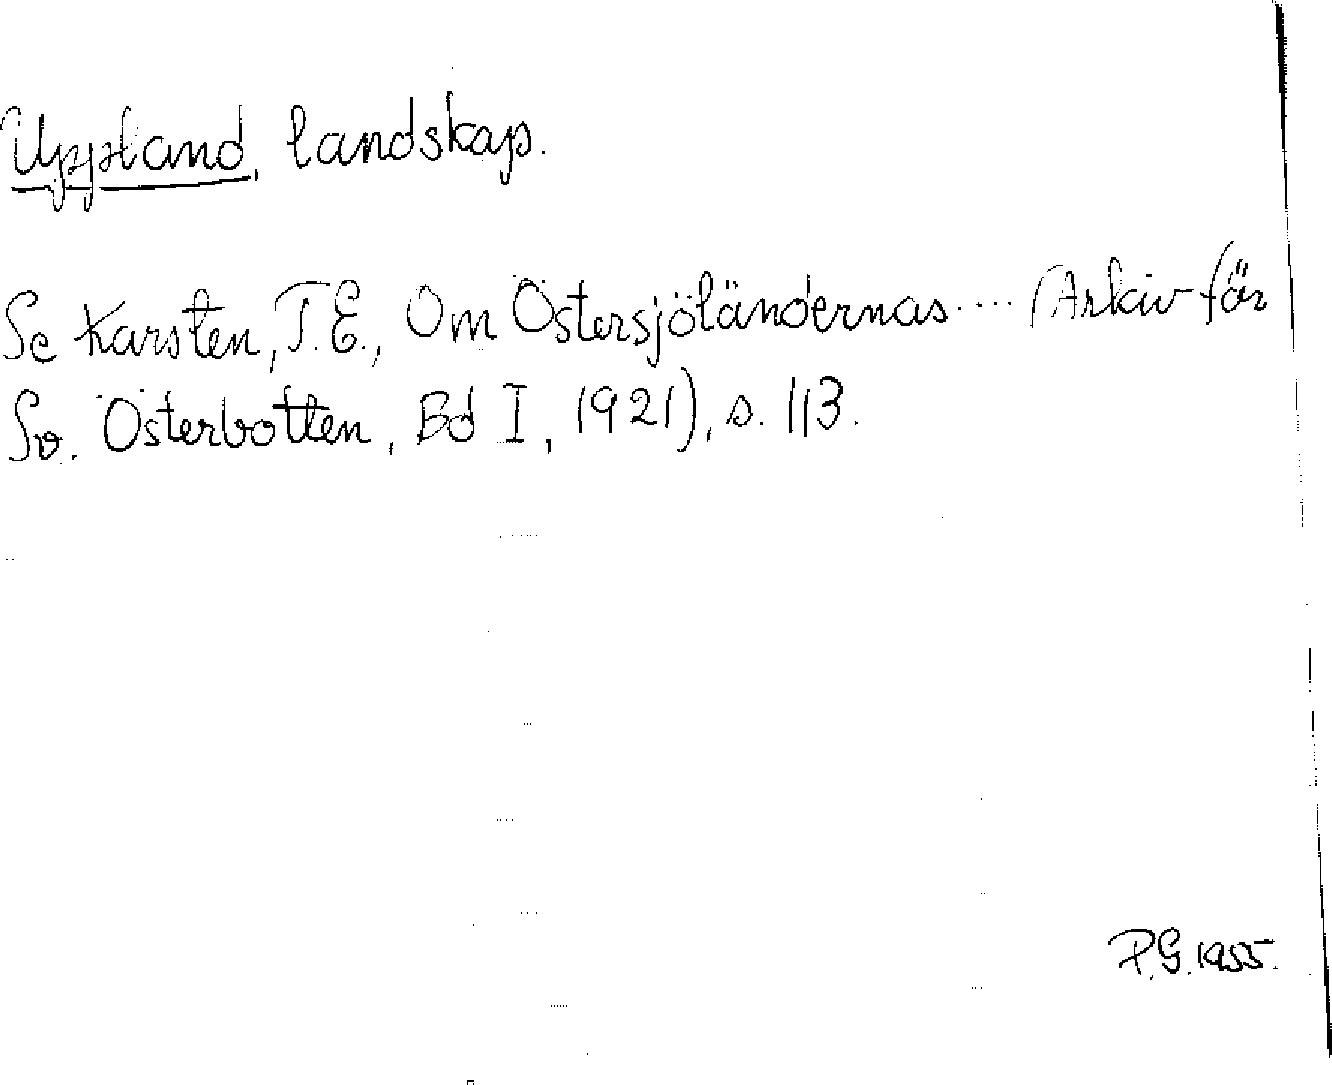 Uppland, landskap.
Se Karsten, T.E., Om Östersjöländernas.... (Arkiv för
Sv. Österbotten, Bd I, 1921), s. 113.
P.G. 1955.